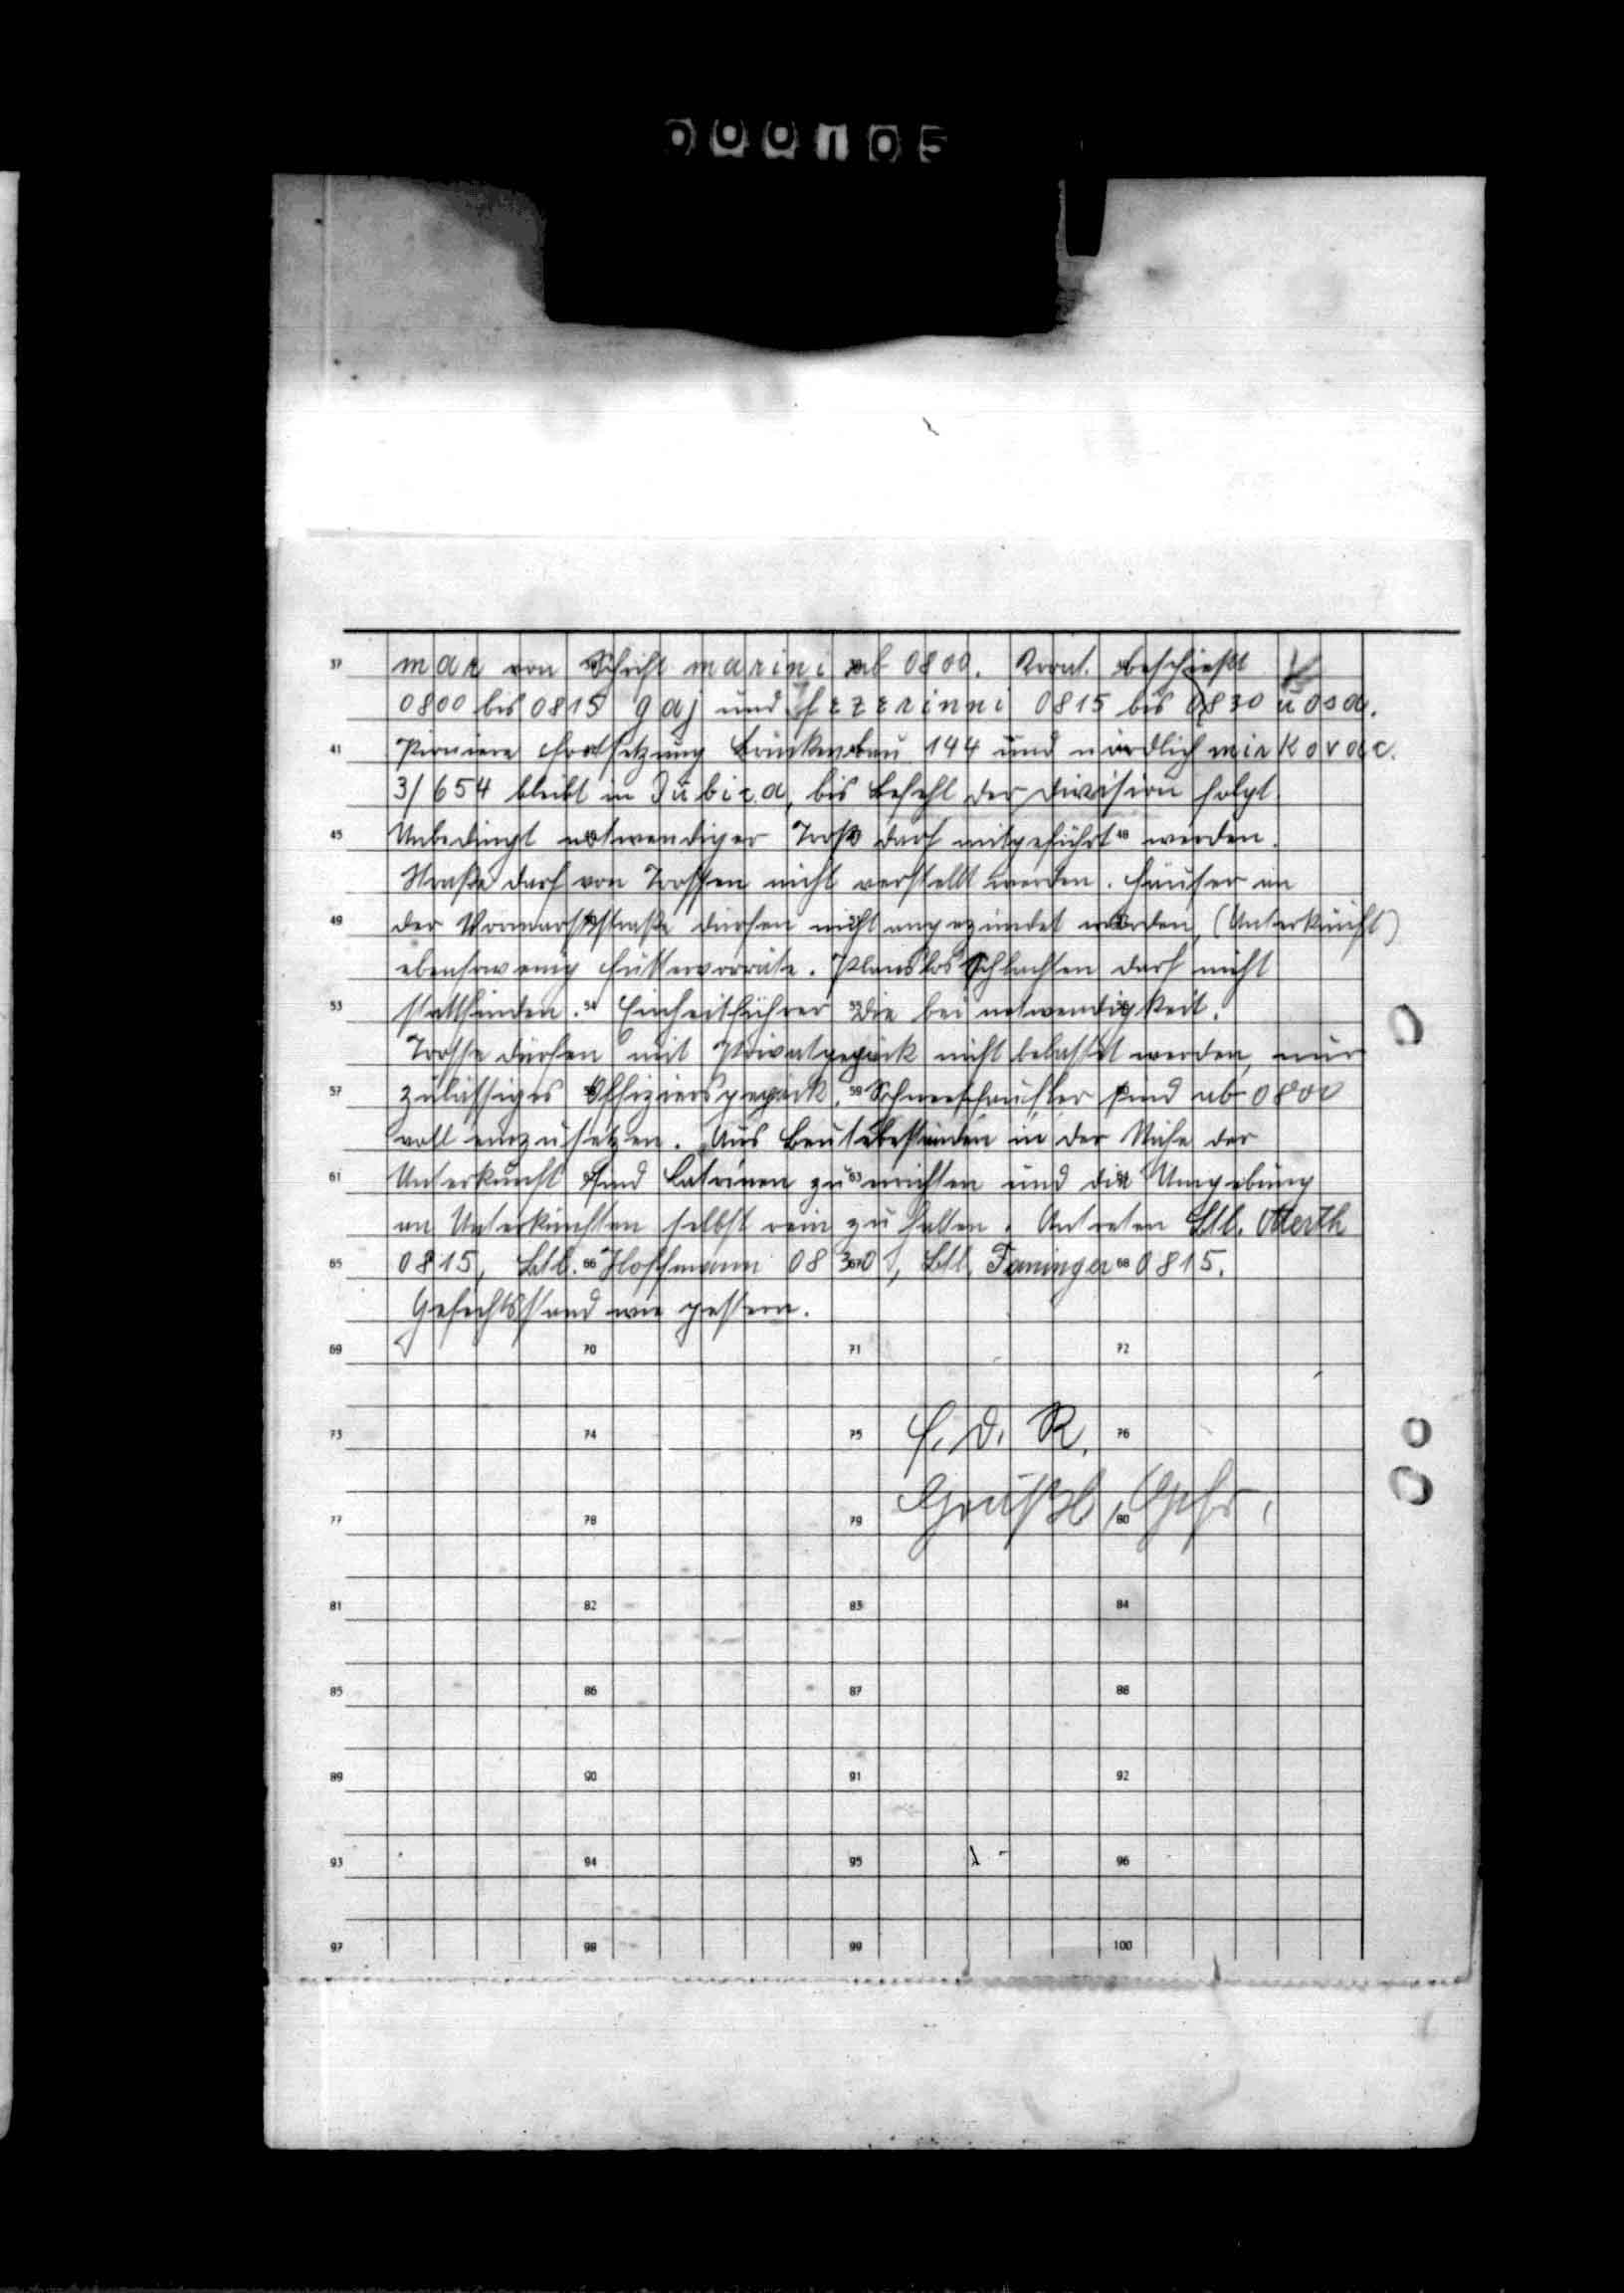 000105
37 mar von Schicht marini ab 0800. Kroat. beschießt
0800 bis 0815 gaj und jezerinni 0815 bis 0830 uosa.
41 Pioniere Fortsetzung Brückenbau 144 und nördlich mirkovac.
3/654 bleibt in Dubica, bis Befehl der Division folgt.
45 Unbedingt notwendiger Troß darf mitgeführt 48 werden.
Straße darf von Trossen nicht verstellt werden. Häuser an
49 der Vormarschstraße dürfen nicht angezündet werden, (Unterkunft)
ebensowenig Futtervorräte. Planslos Schlachten darf nicht
53 stattfinden. 54 Einheitsführer 55 die bei notwendigkeit.
Trosse dürfen mit Privatgepäck nicht belastet werden, nur
57 zulässiges Offiziersgepäck. 59 Schneeschaufler sind ab 0800
voll einzusetzen. Aus Beutebeständen in der Nähe der
61 Unterkunft sind Latrinen zu 63 errichten und die Umgebung
an Unterkünften selbst rein zu halten. Antreten Btl. Merth
65 0815, Btl. 66 Hoffmann 0830, Btl. Faninger 68 0815.
Gefechtsstand wie gestern.
69 70 71 72
73 74 75 F. d. R. 76
77 78 79 80 Gefr.
81 82 83 84
85 86 87 88
89 90 91 92
93 94 95 96
97 98 99 100